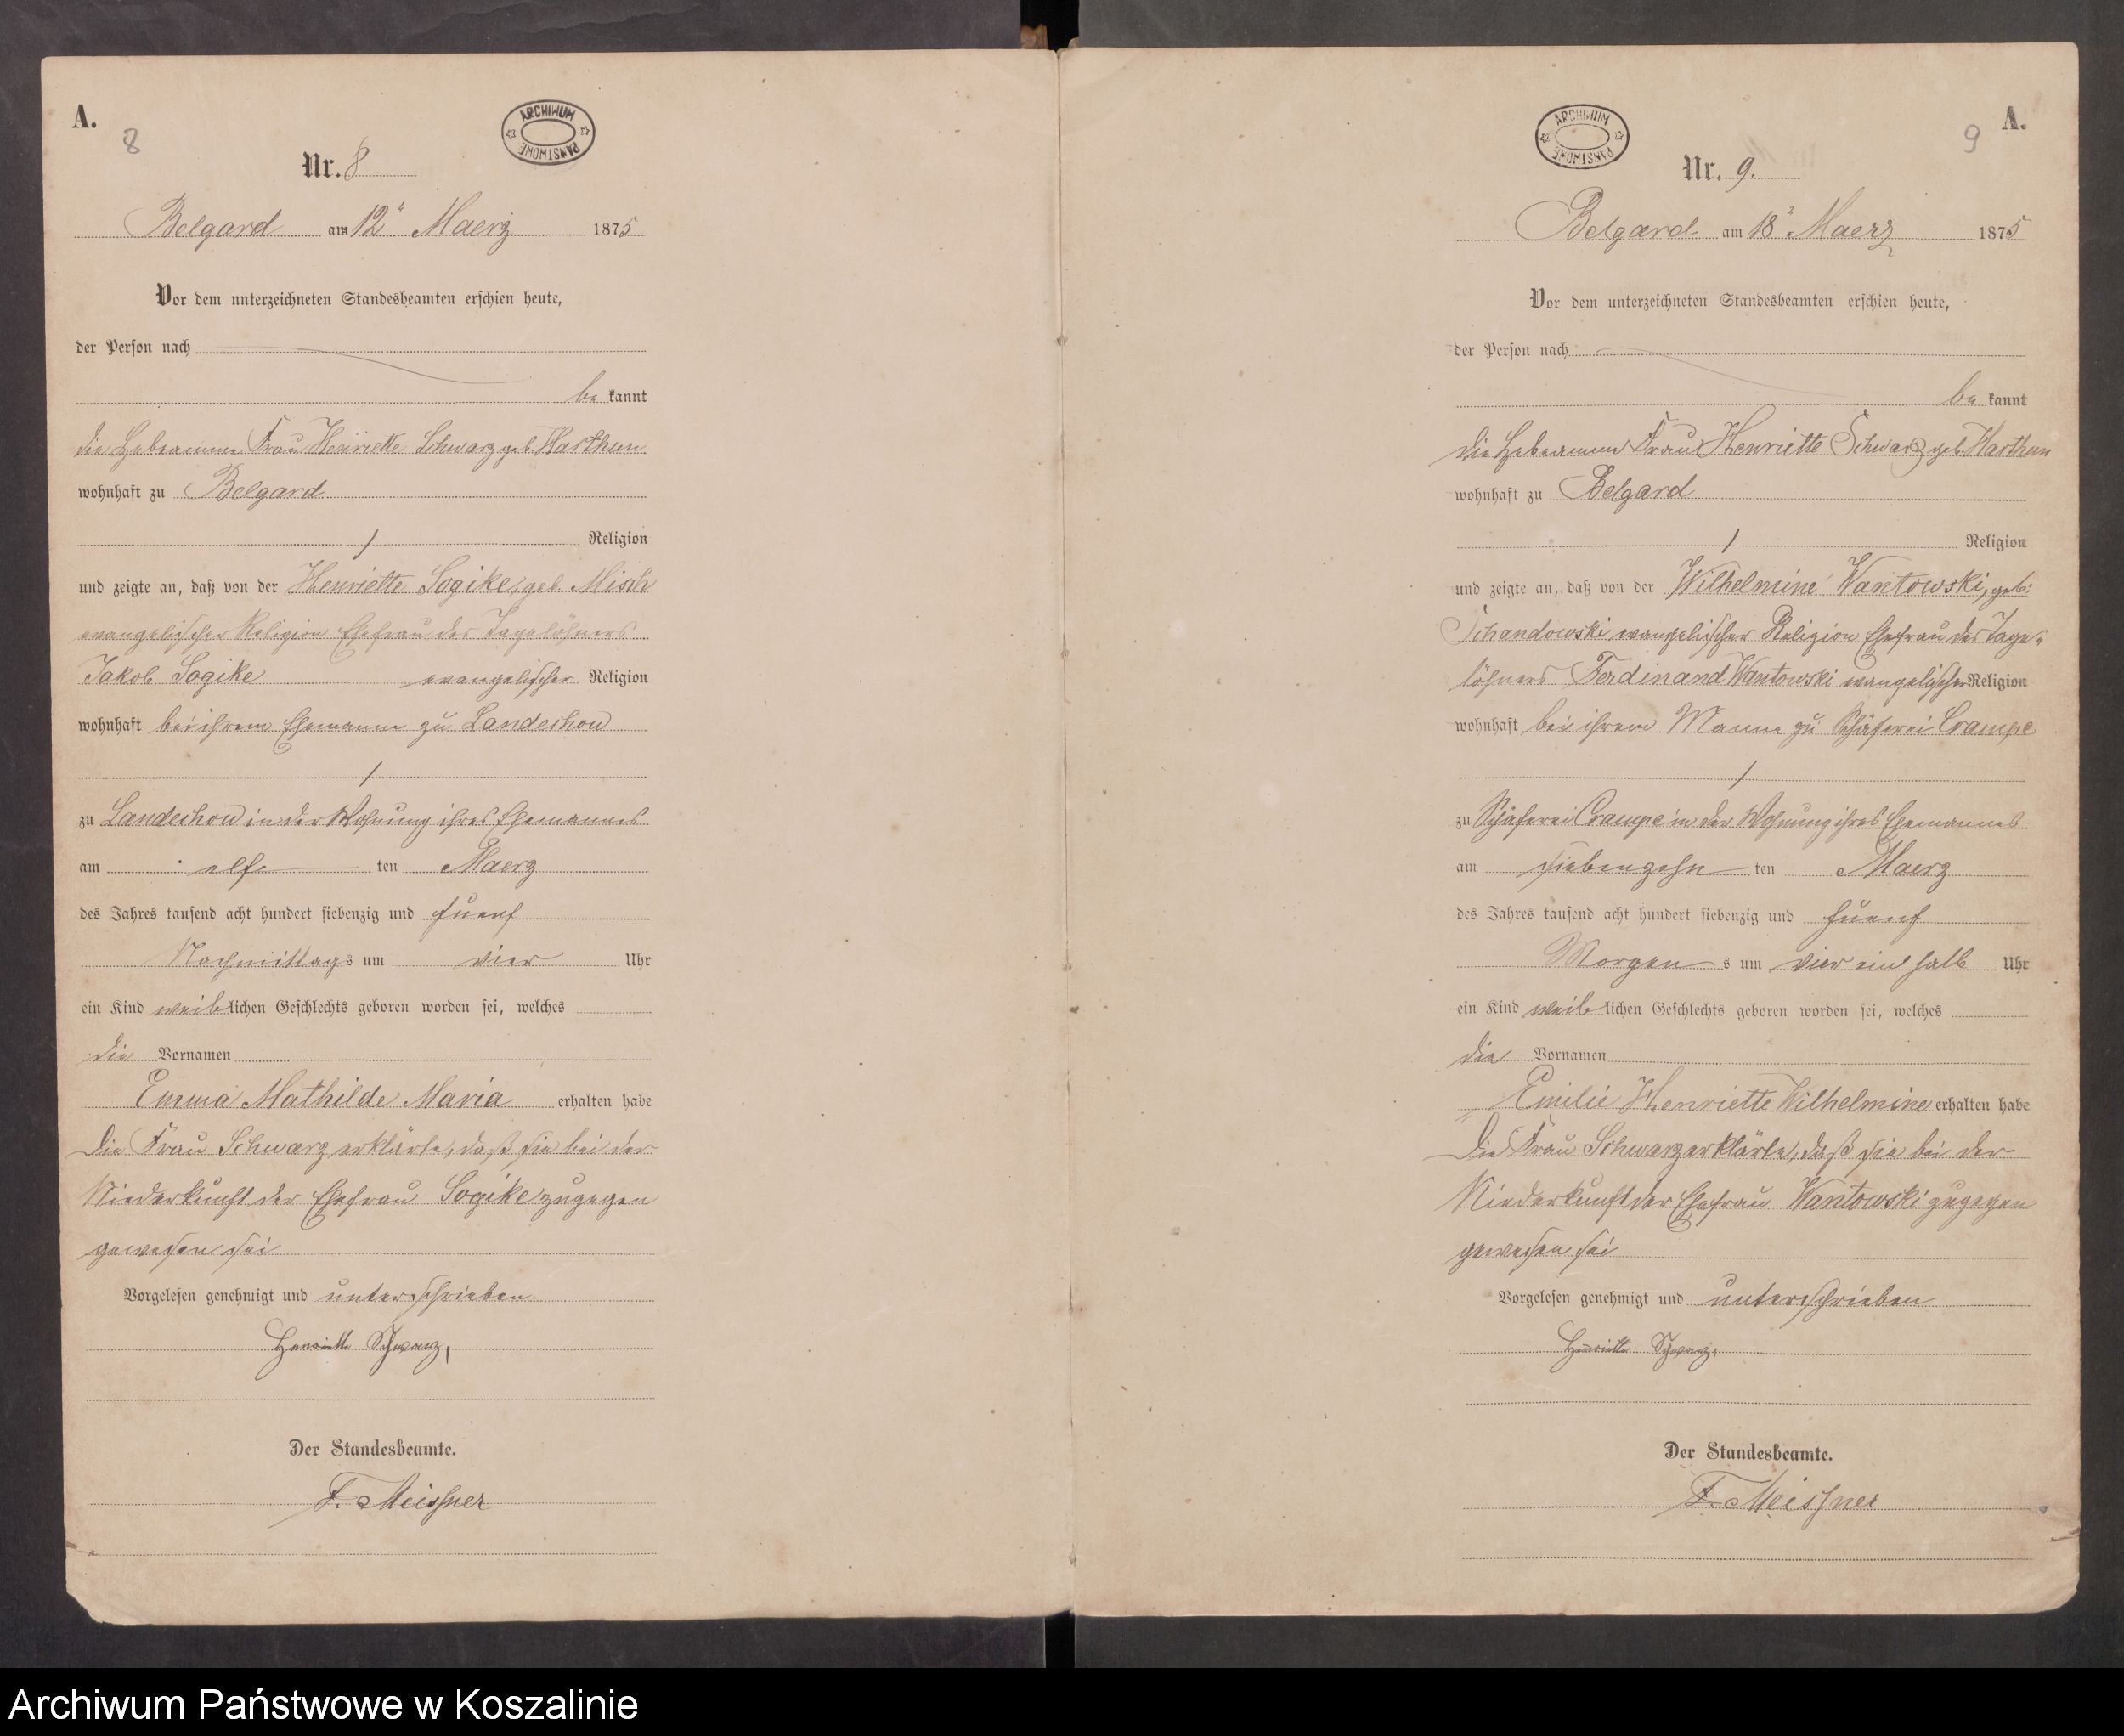 A.
8
ARCHIWUM PAŃSTWOWE
Nr. 8
Belgard am 12ⁿ Maerz 1875
Vor dem unterzeichneten Standesbeamten erschien heute,
der Person nach
be kannt
die Hebeamme Frau Henriette Schwarz geb. Harthun
wohnhaft zu Belgard
/ Religion
und zeigte an, daß von der Henriette Sogike, geb. Misch
evangelischer Religion Ehefrau des Tagelöhners
Jakob Sogike evangelischer Religion
wohnhaft bei ihrem Ehemanne zu Landechow
/
zu Landechow in der Wohnung ihres Ehemannes
am elf ten Maerz
des Jahres tausend acht hundert siebenzig und fuenf
Nachmittags um vier Uhr
ein Kind weiblichen Geschlechts geboren worden sei, welches
die Vornamen
Emma Mathilde Maria erhalten habe
Die Frau Schwarz erklärte, daß sie bei der
Niederkunft der Ehefrau Sogike zugegen
gewesen sei
Vorgelesen genehmigt und unterschrieben
Henriette Schwarz,
Der Standesbeamte.
F. Meissner
A.
9
ARCHIWUM PAŃSTWOWE
Nr. 9.
Belgard am 18 Maerz 1875
Vor dem unterzeichneten Standesbeamten erschien heute,
der Person nach
be kannt
die Hebeamme Frau Henriette Schwarz geb. Harthun
wohnhaft zu Belgard
/ Religion
und zeigte an, daß von der Wilhelmine Wantowski, geb:
Schandowski evangelischer Religion Ehefrau des Tage-
löhners Ferdinand Wantowski evangelischer Religion
wohnhaft bei ihrem Manne zu Schäferei Crampe
/
zu Schäferei Crampe in der Wohnung ihres Ehemannes
am siebenzehn ten Maerz
des Jahres tausend acht hundert siebenzig und fuenf
Morgens um vier ein halb Uhr
ein Kind weiblichen Geschlechts geboren worden sei, welches
die Vornamen
Emilie Henriette Wilhelmine erhalten habe
Die Frau Schwarz erklärte, daß sie bei der
Niederkunft der Ehefrau Wantowski zugegen
gewesen sei
Vorgelesen genehmigt und unterschrieben
Henriette Schwarz.
Der Standesbeamte.
F. Meissner
Archiwum Państwowe w Koszalinie